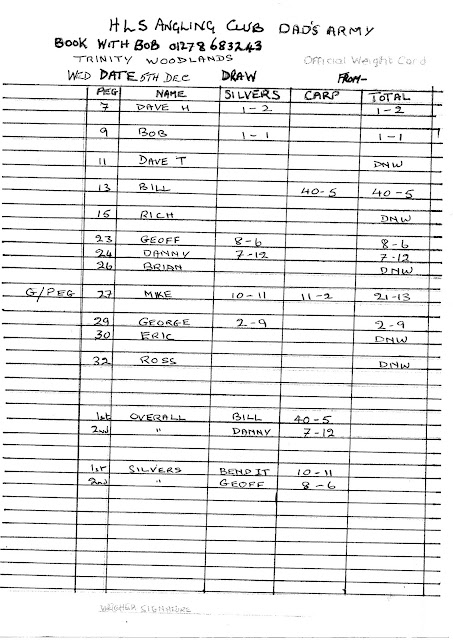 HLS ANGLING CLUB DAD'S ARMY
BOOK WITH BOB 01278 683243
TRINITY WOODLANDS Official Weight Card
WED DATE 5TH DEC DRAW FROM-
PEG NAME SILVERS CARP TOTAL
7 DAVE H 1-2 1-2
9 BOB 1-1 1-1
11 DAVE T DNW
13 BILL 40-5 40-5
15 RICH DNW
23 GEOFF 8-6 8-6
24 DANNY 7-12 7-12
26 BRIAN DNW
G/PEG 27 MIKE 10-11 11-2 21-13
29 GEORGE 2-9 2-9
30 ERIC DNW
32 ROSS DNW
1st OVERALL BILL 40-5
2nd " DANNY 7-12
1st SILVERS BENDIT 10-11
2nd " GEOFF 8-6